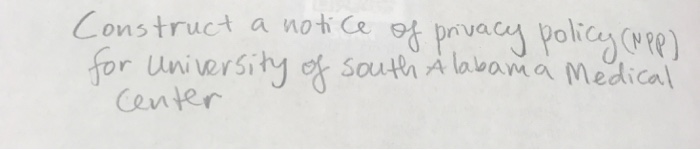 Construct a notice of privacy policy (NPP)
for University of south Alabama Medical
Center